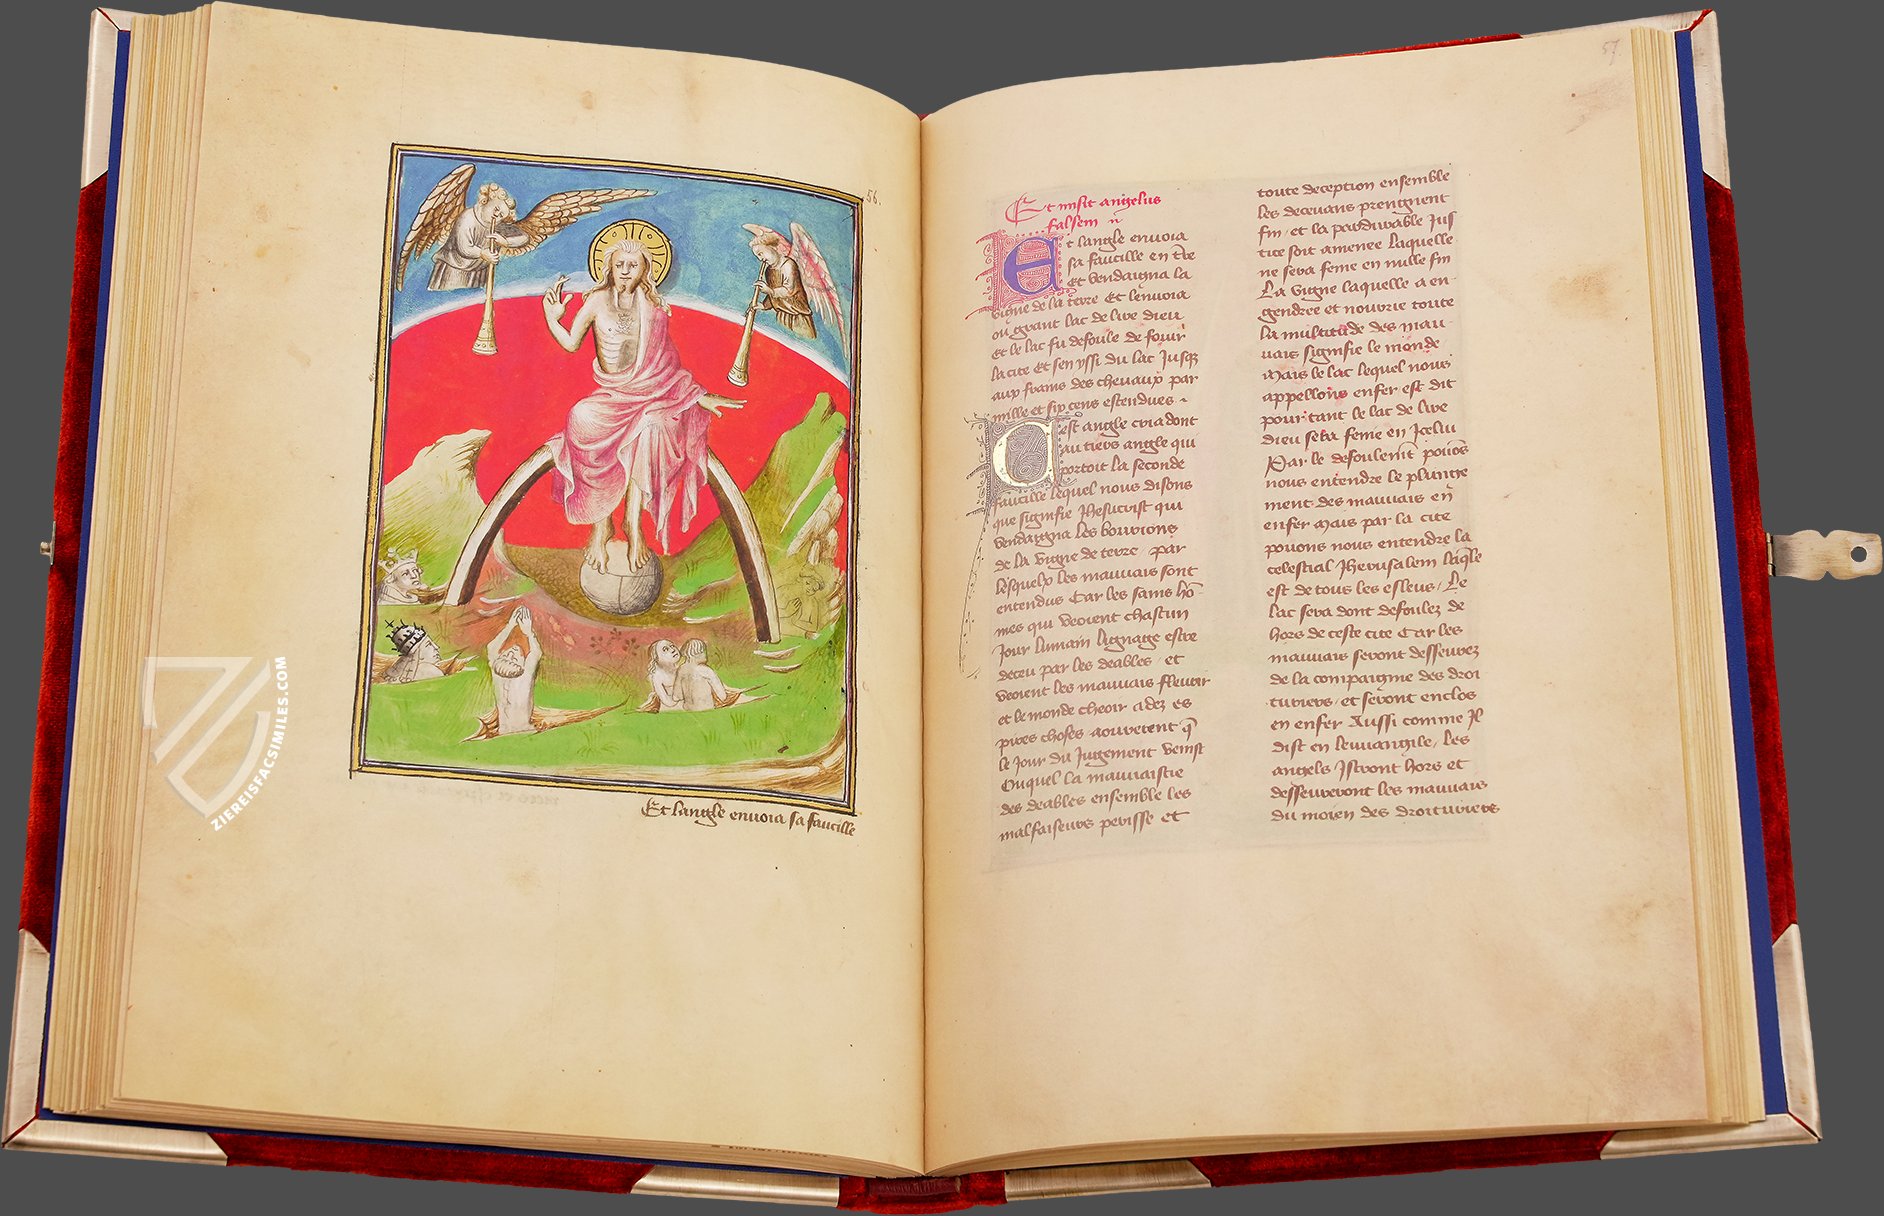 56.
Et langle enuoia sa faucille
ZIEREISFACSIMILES.COM
57.
Et misit angelus
falsem
Et langle enuoia
sa faucille en tre
et vendaigna la
vigne de la terre Et lenuoia
ou grant lac de live dieu
et le lac fu defoule de four
la cite Et sen yssi du lac Jusq
aux frains des cheuaux par
mille et six cens estendues
Cest angle cria dont
au tiers angle qui
portoit la seconde
faucille lequel nous disons
que signifie Jhesucrist qui
vendaigna les
de la vigne de terre par
lesquelx les mauuais sont
entendus Car les sains ho
mes qui veoient chascun
Jour lumain lignage estre
deceu par les deables et
veoient les mauuais flleurir
et le monde cheoir adez es
pires choses aouverent q
le Jour du Jugement venist
Ouquel la mauuaistie
des deables ensemble les
malfaiseurs perisse et
toute deception ensemble
les decevans prengnent
fin et la pardurable Jus
tice soit amenee laquelle
ne sera feme en nulle fin
La vigne laquelle a en
gendree et nourrie toute
la multitude des mau
uais signifie le monde
Mais le lac lequel nous
appellons enfer est dit
pour tant le lac de live
dieu sera feme en Jcelui
Par le defoulemt poions
nous entendre le plainge
ment des mauuais en
enfer Mais par la cite
pouons nous entendre la
celestial Jherusalem laqlle
est de tous les esleus Le
lac sera dont defoulez de
hors de ceste cite Car les
mauuais seront desseurez
de la compaignie des droi
turiers et seront enclos
en enfer Aussi comme Jl
dist en leuuangile les
angels Jstront hors et
desseureront les mauuais
du moien des droituriers